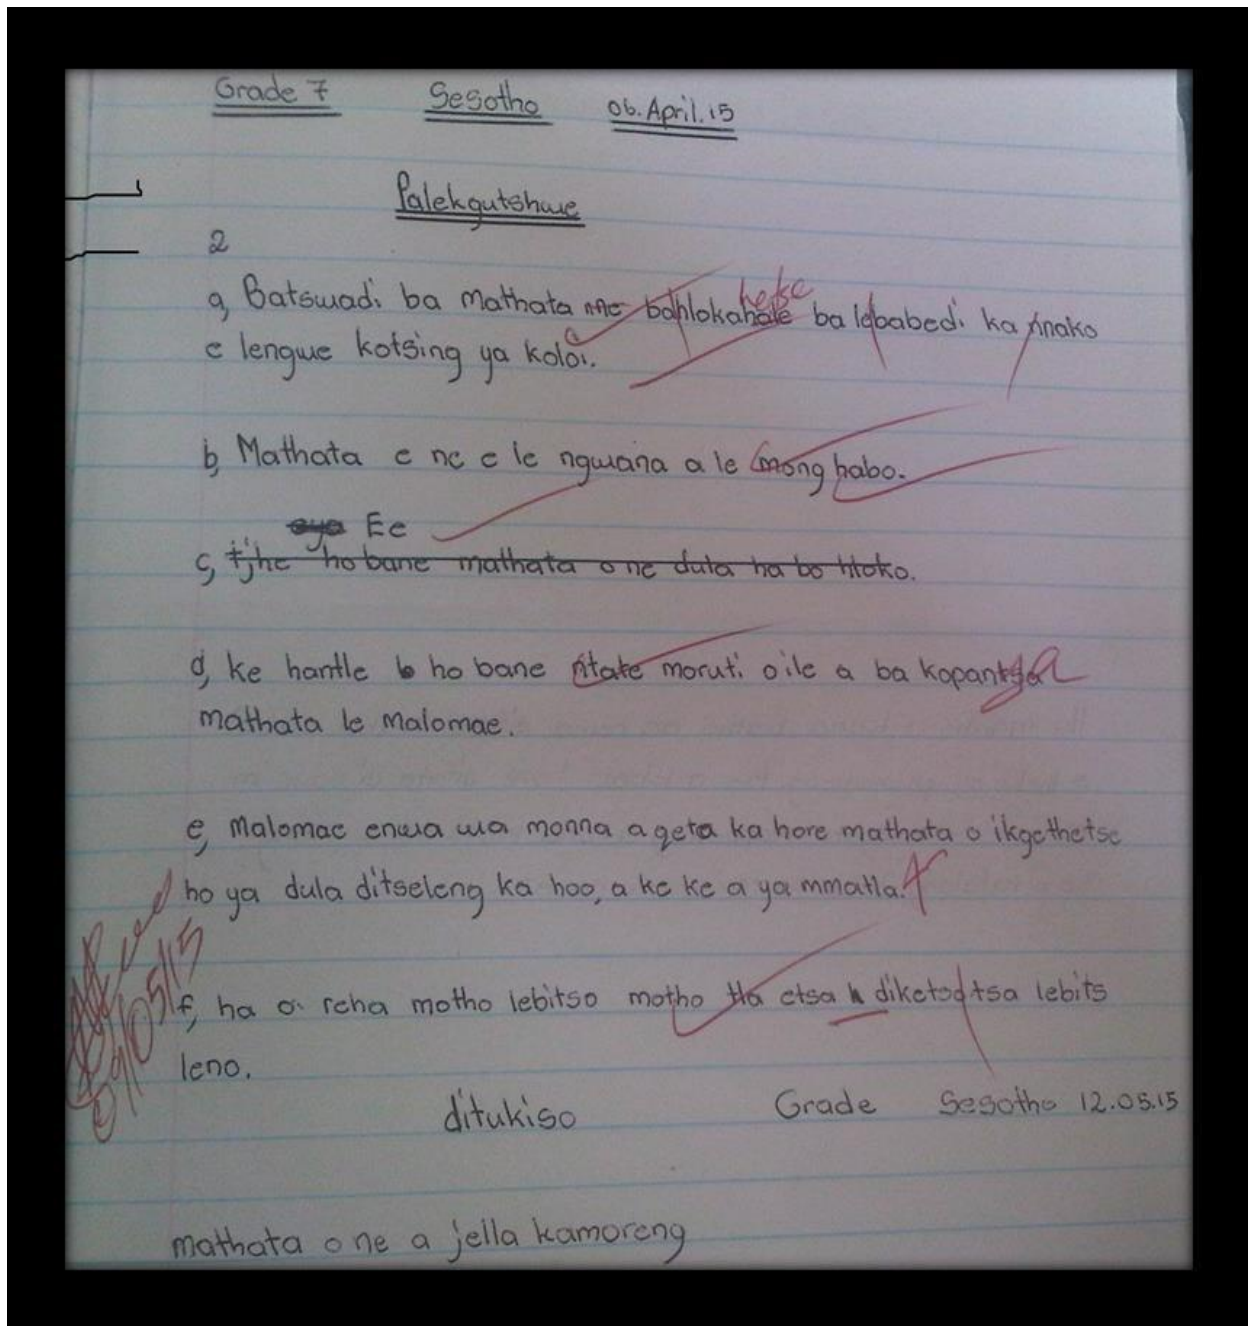 Grade 7 Sesotho 06.April.15
Palekgutshwe
2
a, Batswadi ba mathata ne bahlokahale ba lebabedi ka nnako
hetse
e lengwe kotsing ya koloi.
e
b, Mathata e ne e le ngwana a le mong habo.
Ee
c, tjhe ho bane mathata o ne dula ha bo hloko.
d, ke hantle ho bane ntate moruti oile a ba kopantsa
mathata le malomae.
e, Malomae enwa wa monna a qeta ka hore mathata o ikgethetse
ho ya dula ditseleng ka hoo, a ke ke a ya mmatla.
09/05/15
f, ha o reha motho lebitso motho tla etsa diketso tsa lebits
leno.
ditukiso Grade Sesotho 12.05.15
mathata o ne a jella kamoreng